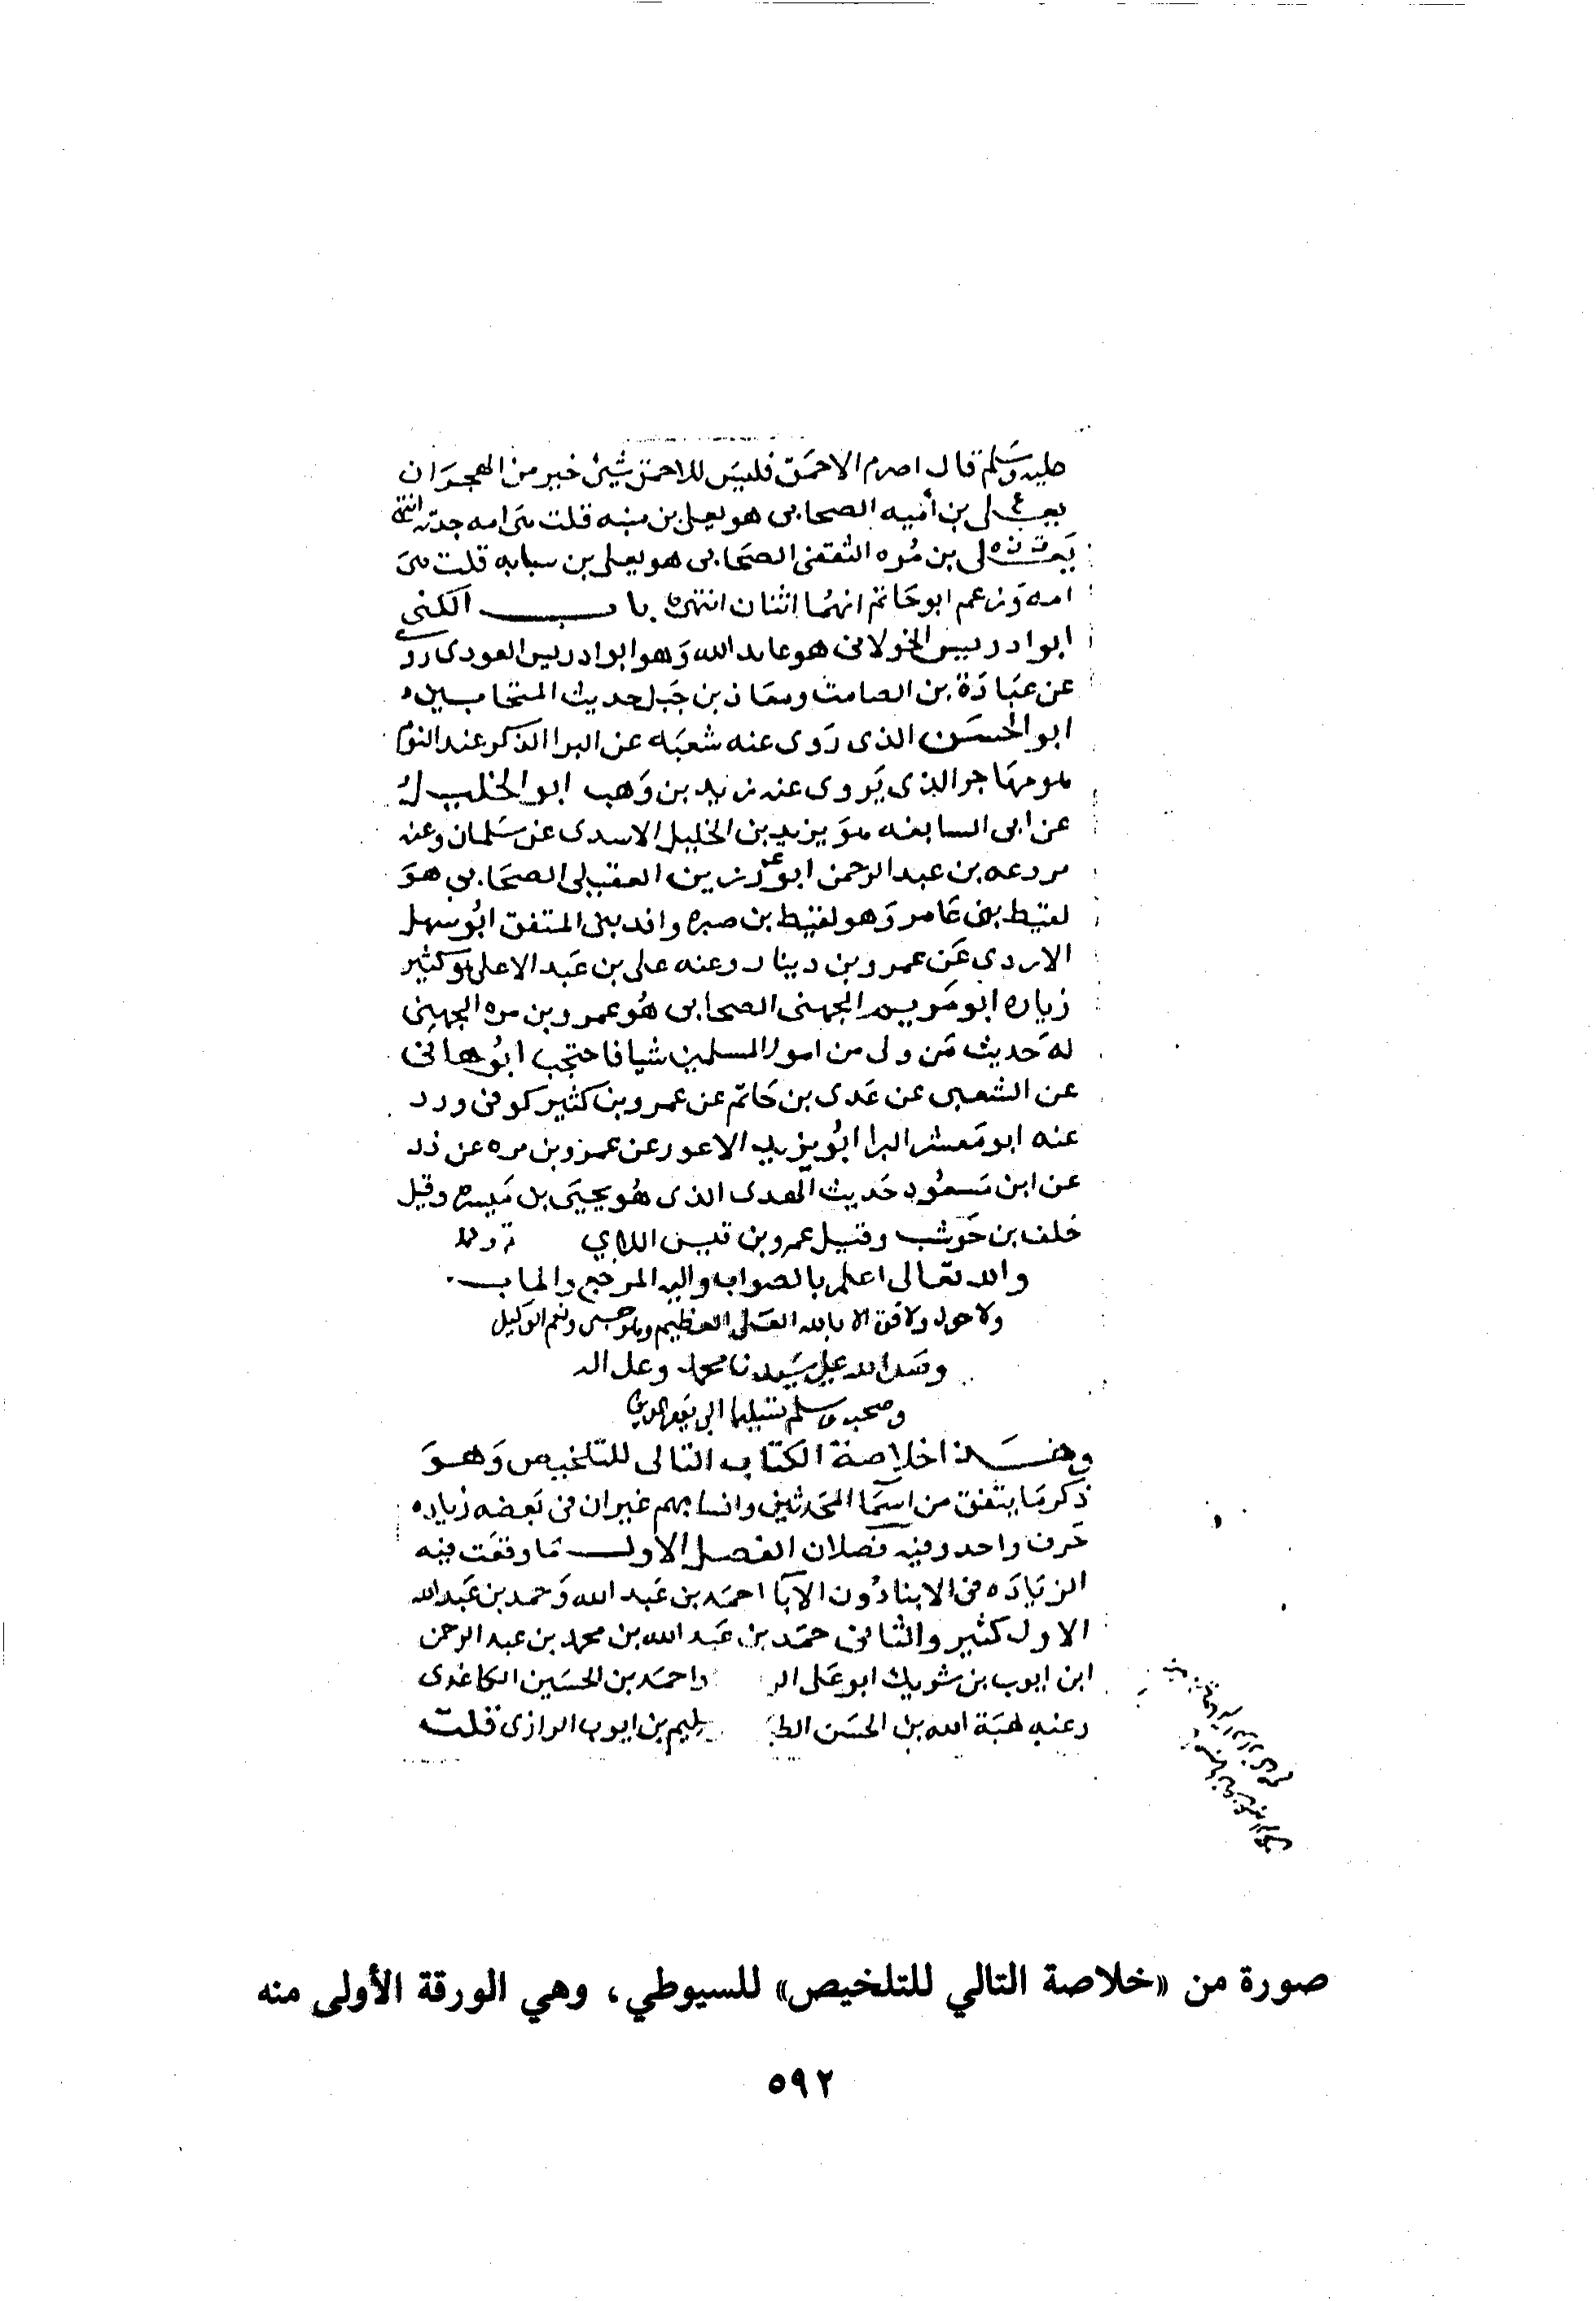 عليه وسلم قال اصرم الاحمق فليس للاحمق شيئ خير من الهجران
يعلى بن أميه الصحابى هو يعلى بن منيه قلت هى امه جدته انتهى
يعلى بن مُره الثقفى الصحابى هو يعلى بن سبابه قلت هى
امه وزعم ابو حاتم انهما اثنان انتهى باب الكنى
ابو ادريس الخولانى هو عايد الله وهو ابو ادريس العودى روى
عن عبادة بن الصامت ومعاذ بن جبل حديث المتحابين
ابو الحسن الذى روى عنه شعبه عن البرا الذكر عند النوم
هو مهاجر الذى يروى عنه زيد بن وهب ابو الخليل
عن ابى السابغه هو يزيد بن الخليل الاسدى عن سلمان وعنه
بن عبد الرحمن ابو رزين العقيلى الصحابى هو
لقيط بن عامر وهو لقيط بن صبره وافد بنى المتفق ابو سهل
الازدى عن عمرو بن دينار وعنه على بن عبد الاعلى هو كثير
زياد ابو مريم الجهنى الصحابى هو عمرو بن مره الجهنى
له حديث من ولى من امور المسلمين شيا فاحتجب ابو هانى
عن الشعبى عن عدى بن حاتم عن عمرو بن كثير كوفى ورد
عنه ابو معشر البرا ابو يزيد الاعور عن عمرو بن مره عن
عن ابن مسعود حديث الهدى الذى هو يحيى بن ميسره وقيل
خلف بن حوشب وقيل عمرو بن قيس
والله تعالى اعلم بالصواب واليه المرجع والماب
ولا حول ولا قوة الا بالله العلى العظيم وهو حسبى ونعم الوكيل
وصلى الله على سيدنا محمد وعلى اله
وصحبه وسلم تسليما الى يوم الدين
وهذا خلاصة الكتاب التالى للتلخيص وهو
ذكر ما يتفق من اسما المحدثين وانسابهم غير ان فى بعضه زياده
حرف واحد وفيه فصلان الفصل الاول ما وقعت فيه
الزياده فى الابنا دون الابا احمد بن عبد الله وحمد بن عبد الله
الاول كثير والثانى حمد بن عبد الله بن محمد بن عبد الرحمن
ابن ايوب بن شريك ابو على واحمد بن الحسين الكاغدى
وعنه هبة الله بن الحسن سليم بن ايوب الرازى قلت
صورة من «خلاصة التالي للتلخيص» للسيوطي، وهي الورقة الأولى منه
٥٩٢